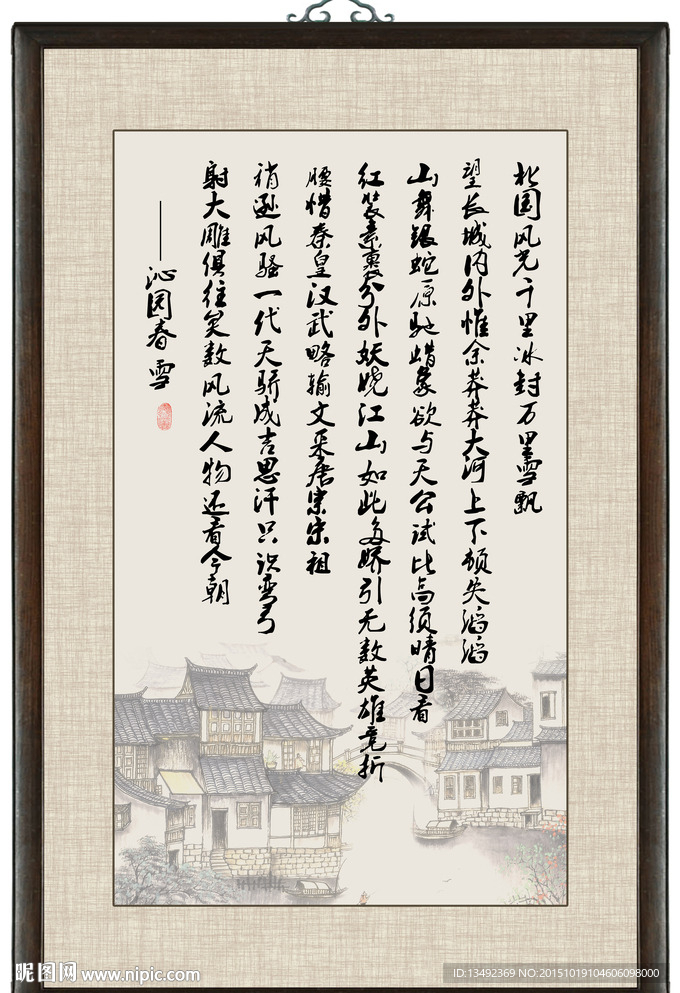 北国风光千里冰封万里雪飘
望长城内外惟余莽莽大河上下顿失滔滔
山舞银蛇原驰蜡象欲与天公试比高须晴日看
红装素裹分外妖娆江山如此多娇引无数英雄竞折
腰惜秦皇汉武略输文采唐宗宋祖
稍逊风骚一代天骄成吉思汗只识弯弓
射大雕俱往矣数风流人物还看今朝
——沁园春 雪
昵图网 www.nipic.com
ID:13492369 NO:20151019104606098000